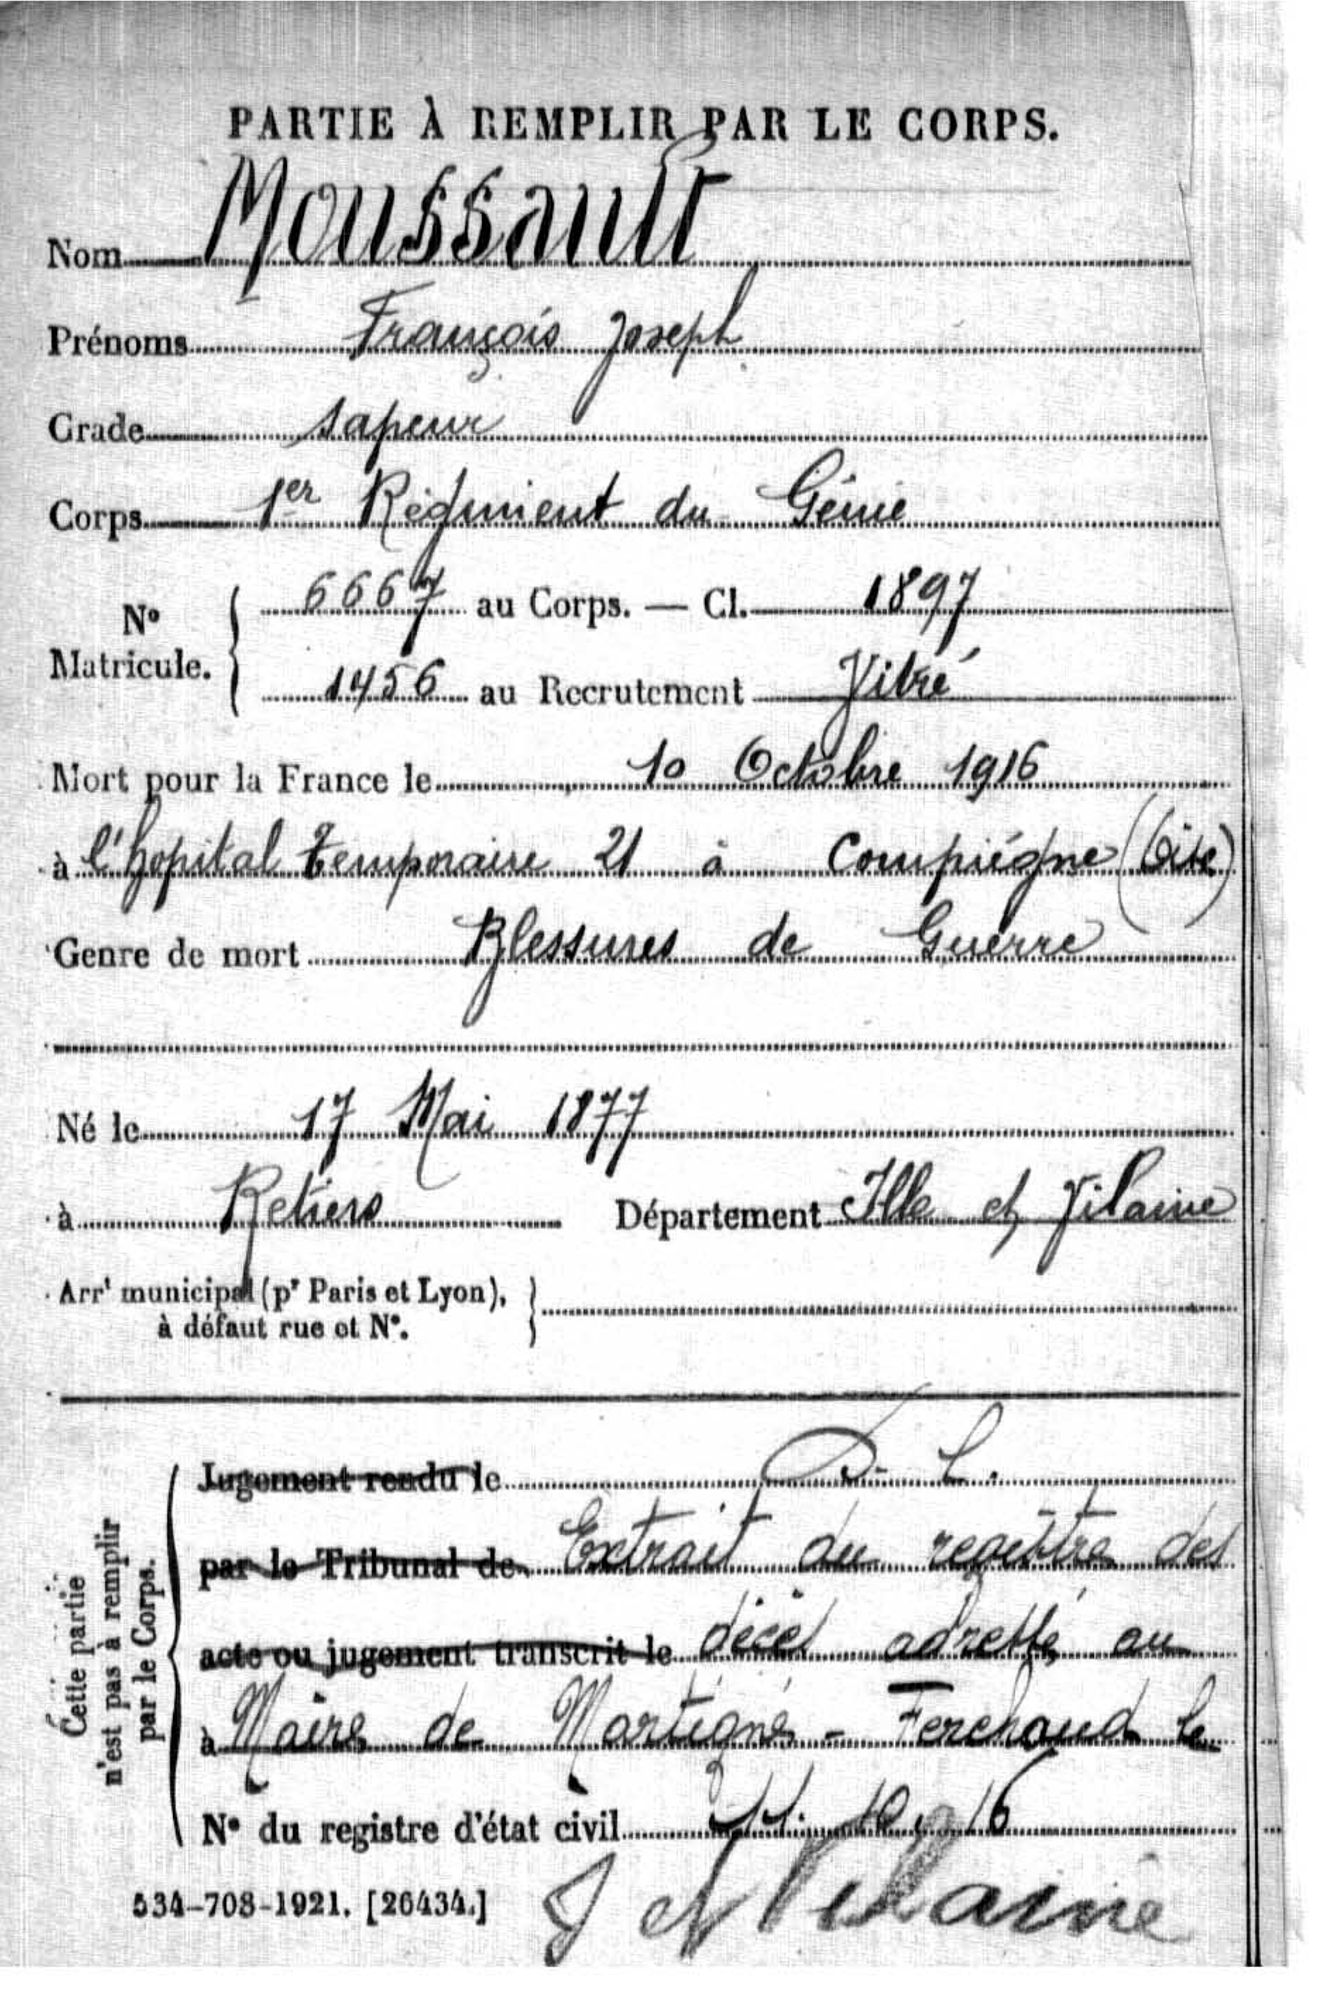 PARTIE À REMPLIR PAR LE CORPS.
Nom Moussault
Prénoms François Joseph
Grade sapeur
Corps 1er Régiment du Génie
No Matricule. 6667 au Corps. — Cl. 1897
1456 au Recrutement Vitré
Mort pour la France le 10 Octobre 1916
à l'hopital temporaire 21 à Compiégne (Oise)
Genre de mort Blessures de Guerre
Né le 17 Mai 1877
à Retiers Département Ille et Vilaine
Arrt municipal (pr Paris et Lyon),
à défaut rue et No.
Cette partie
n'est pas à remplir
par le Corps.
Jugement rendu le
par le Tribunal de Extrait du registre des
acte ou jugement transcrit le décès adressé au
à Maire de Martigné - Ferchaud le
No du registre d'état civil 11. 10. 16
534-708-1921. [26434.]
I et Vilaine